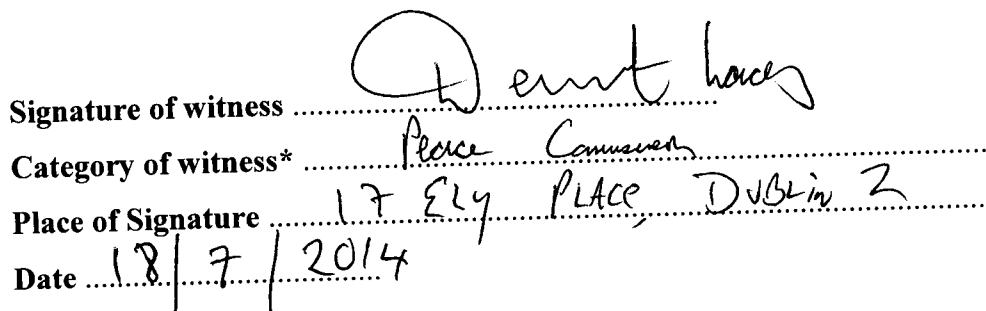 Signature of witness Dermot Lacey
Category of witness* Peace Commissioner
Place of Signature 17 Ely PLACE, DUBLIN 2
Date 18/7/2014